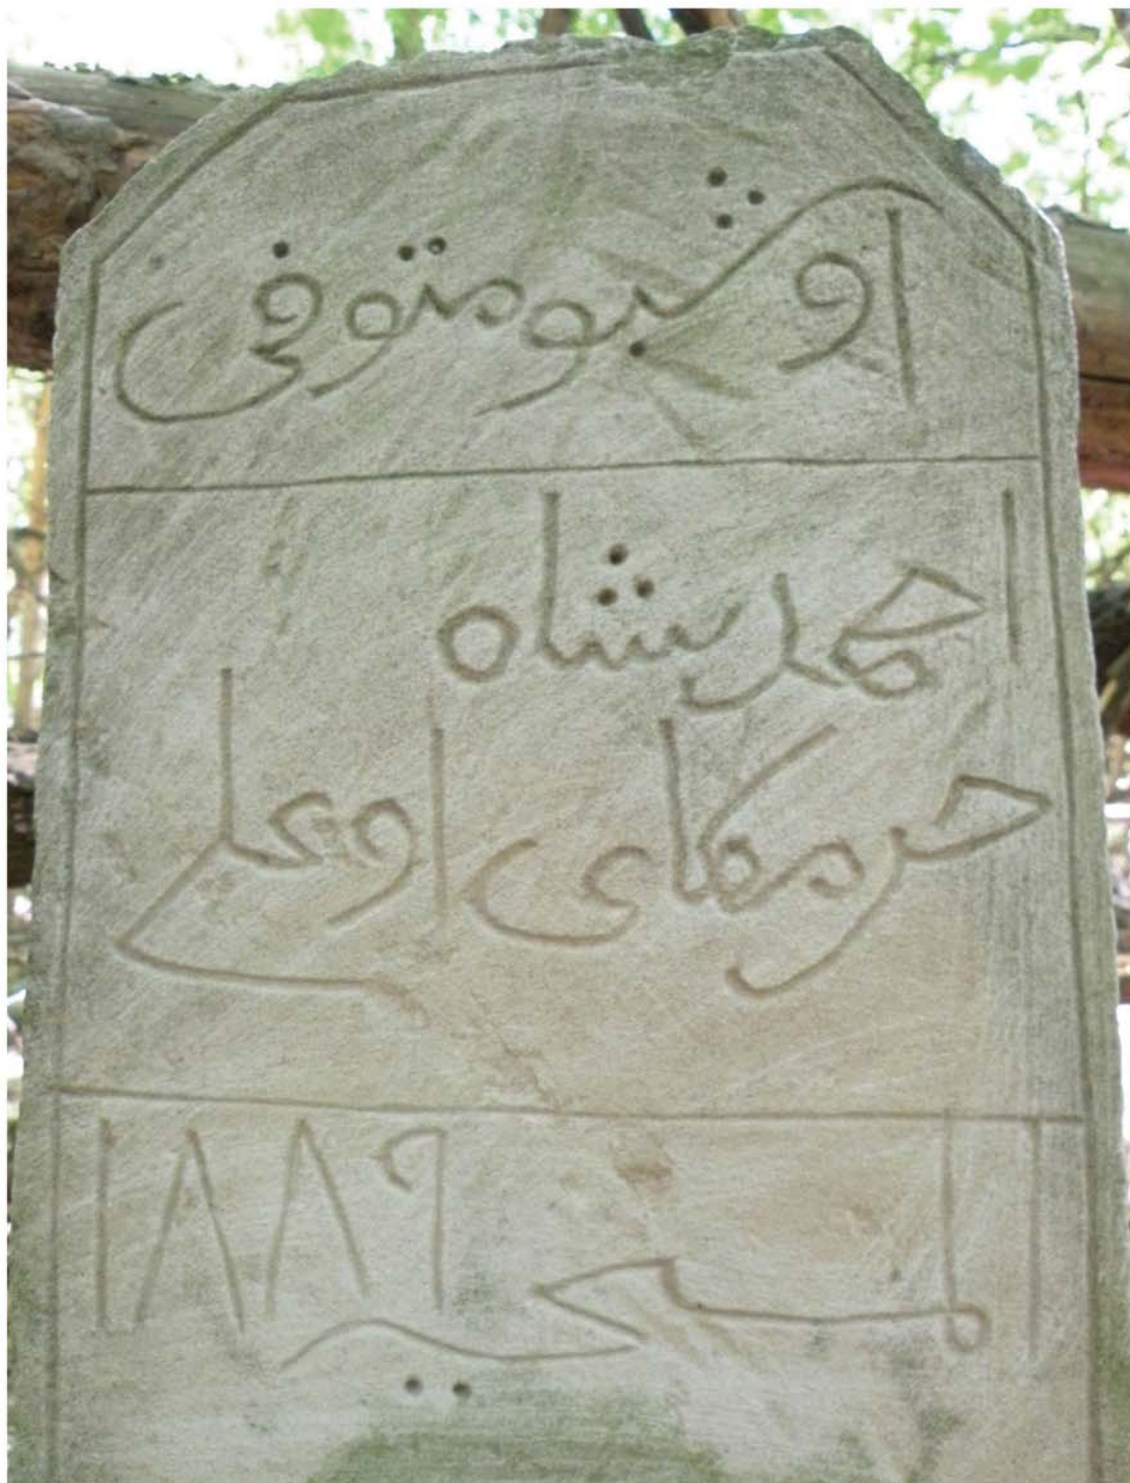 اوشبو متوفی
احمدشاه
حرمکای اوعلی
المسحي ١٨٨٩